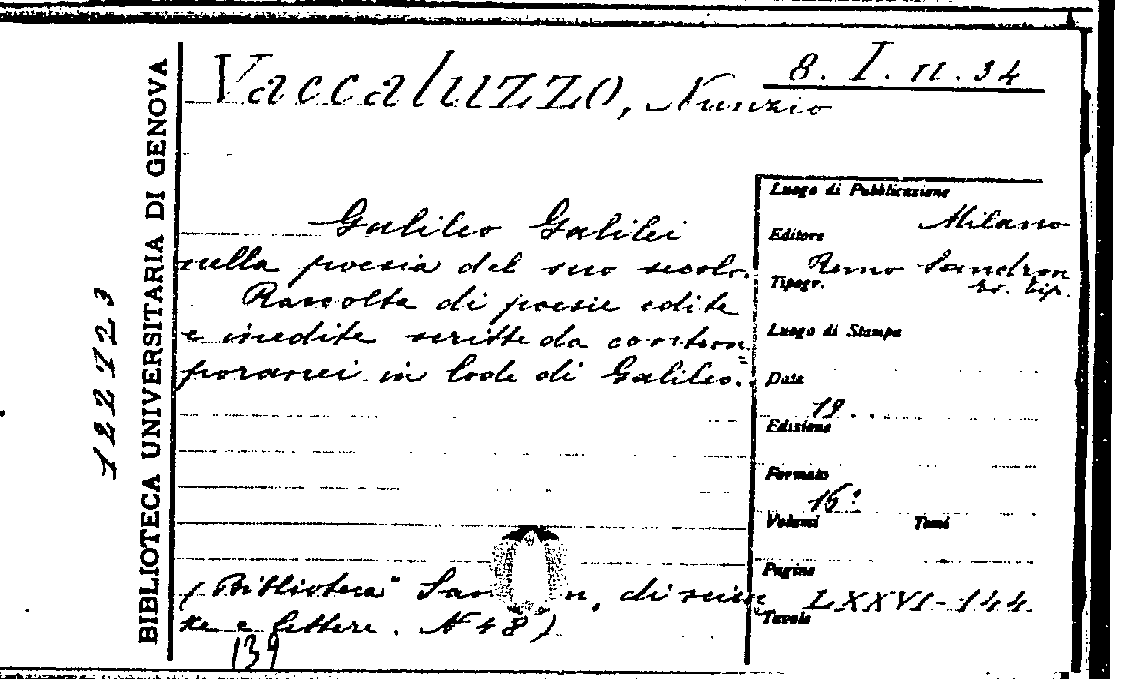 8. I. 11. 34
Vaccaluzzo, Nunzio
Galileo Galilei
nella poesia del suo secolo.
Raccolta di poesie edite
e inedite scritte da contem
poranei in lode di Galileo.
(Biblioteca "San n, di scien
ze e lettere. N 48)
139
BIBLIOTECA UNIVERSITARIA DI GENOVA
122723
Luogo di Pubblicazione
Milano
Editore
Remo Sandron
Tipogr.
ed. tip.
Luogo di Stampa
Data
19..
Edizione
Formato
16º
Volumi Tomi
Pagine
LXXVI-144
Tavole